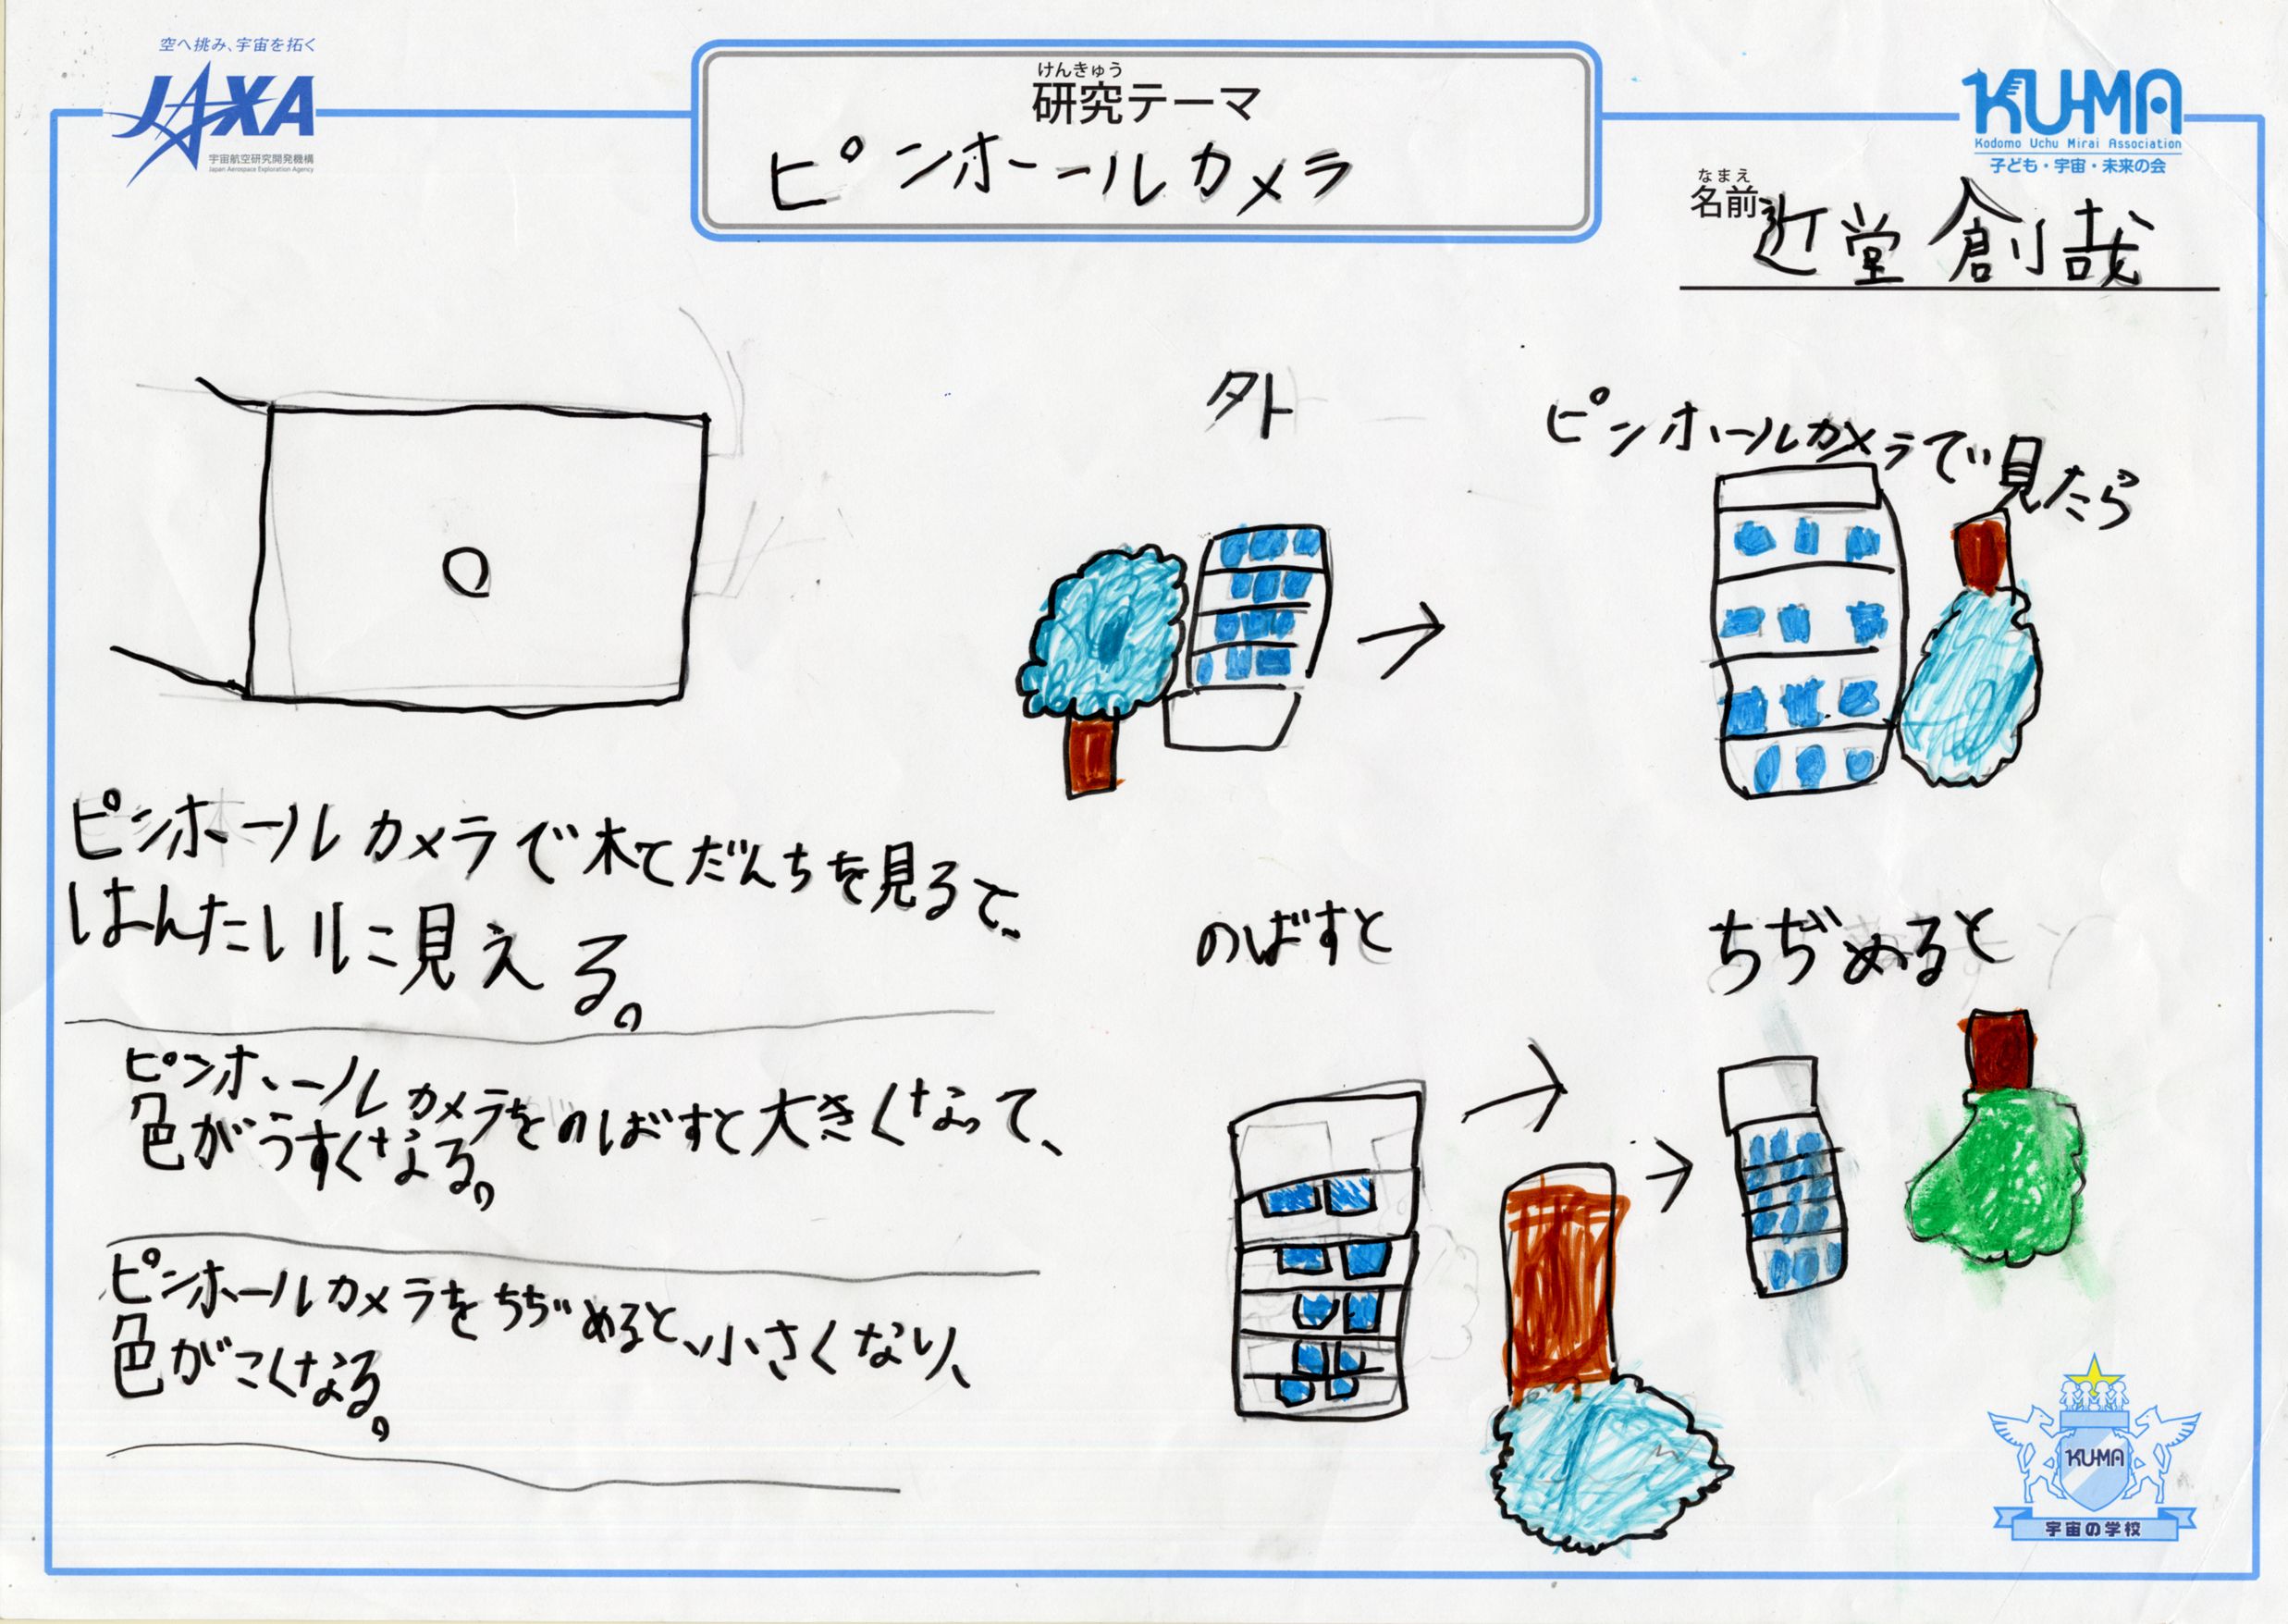 空へ挑み、宇宙を拓く
JAXA
宇宙航空研究開発機構
Japan Aerospace Exploration Agency
けんきゅう
研究テーマ
ピンホールカメラ
KU-MA
Kodomo Uchu Mirai Association
子ども・宇宙・未来の会
なまえ
名前
近堂 創哉
外
ピンホールカメラで見たら
ピンホールカメラで木とだんちを見ると、
はんたいに見える。
ピンホールカメラをのばすと大きくなって、
色がうすくなる。
ピンホールカメラをちぢめると、小さくなり、
色がこくなる。
のばすと
ちぢめると
KU-MA
宇宙の学校